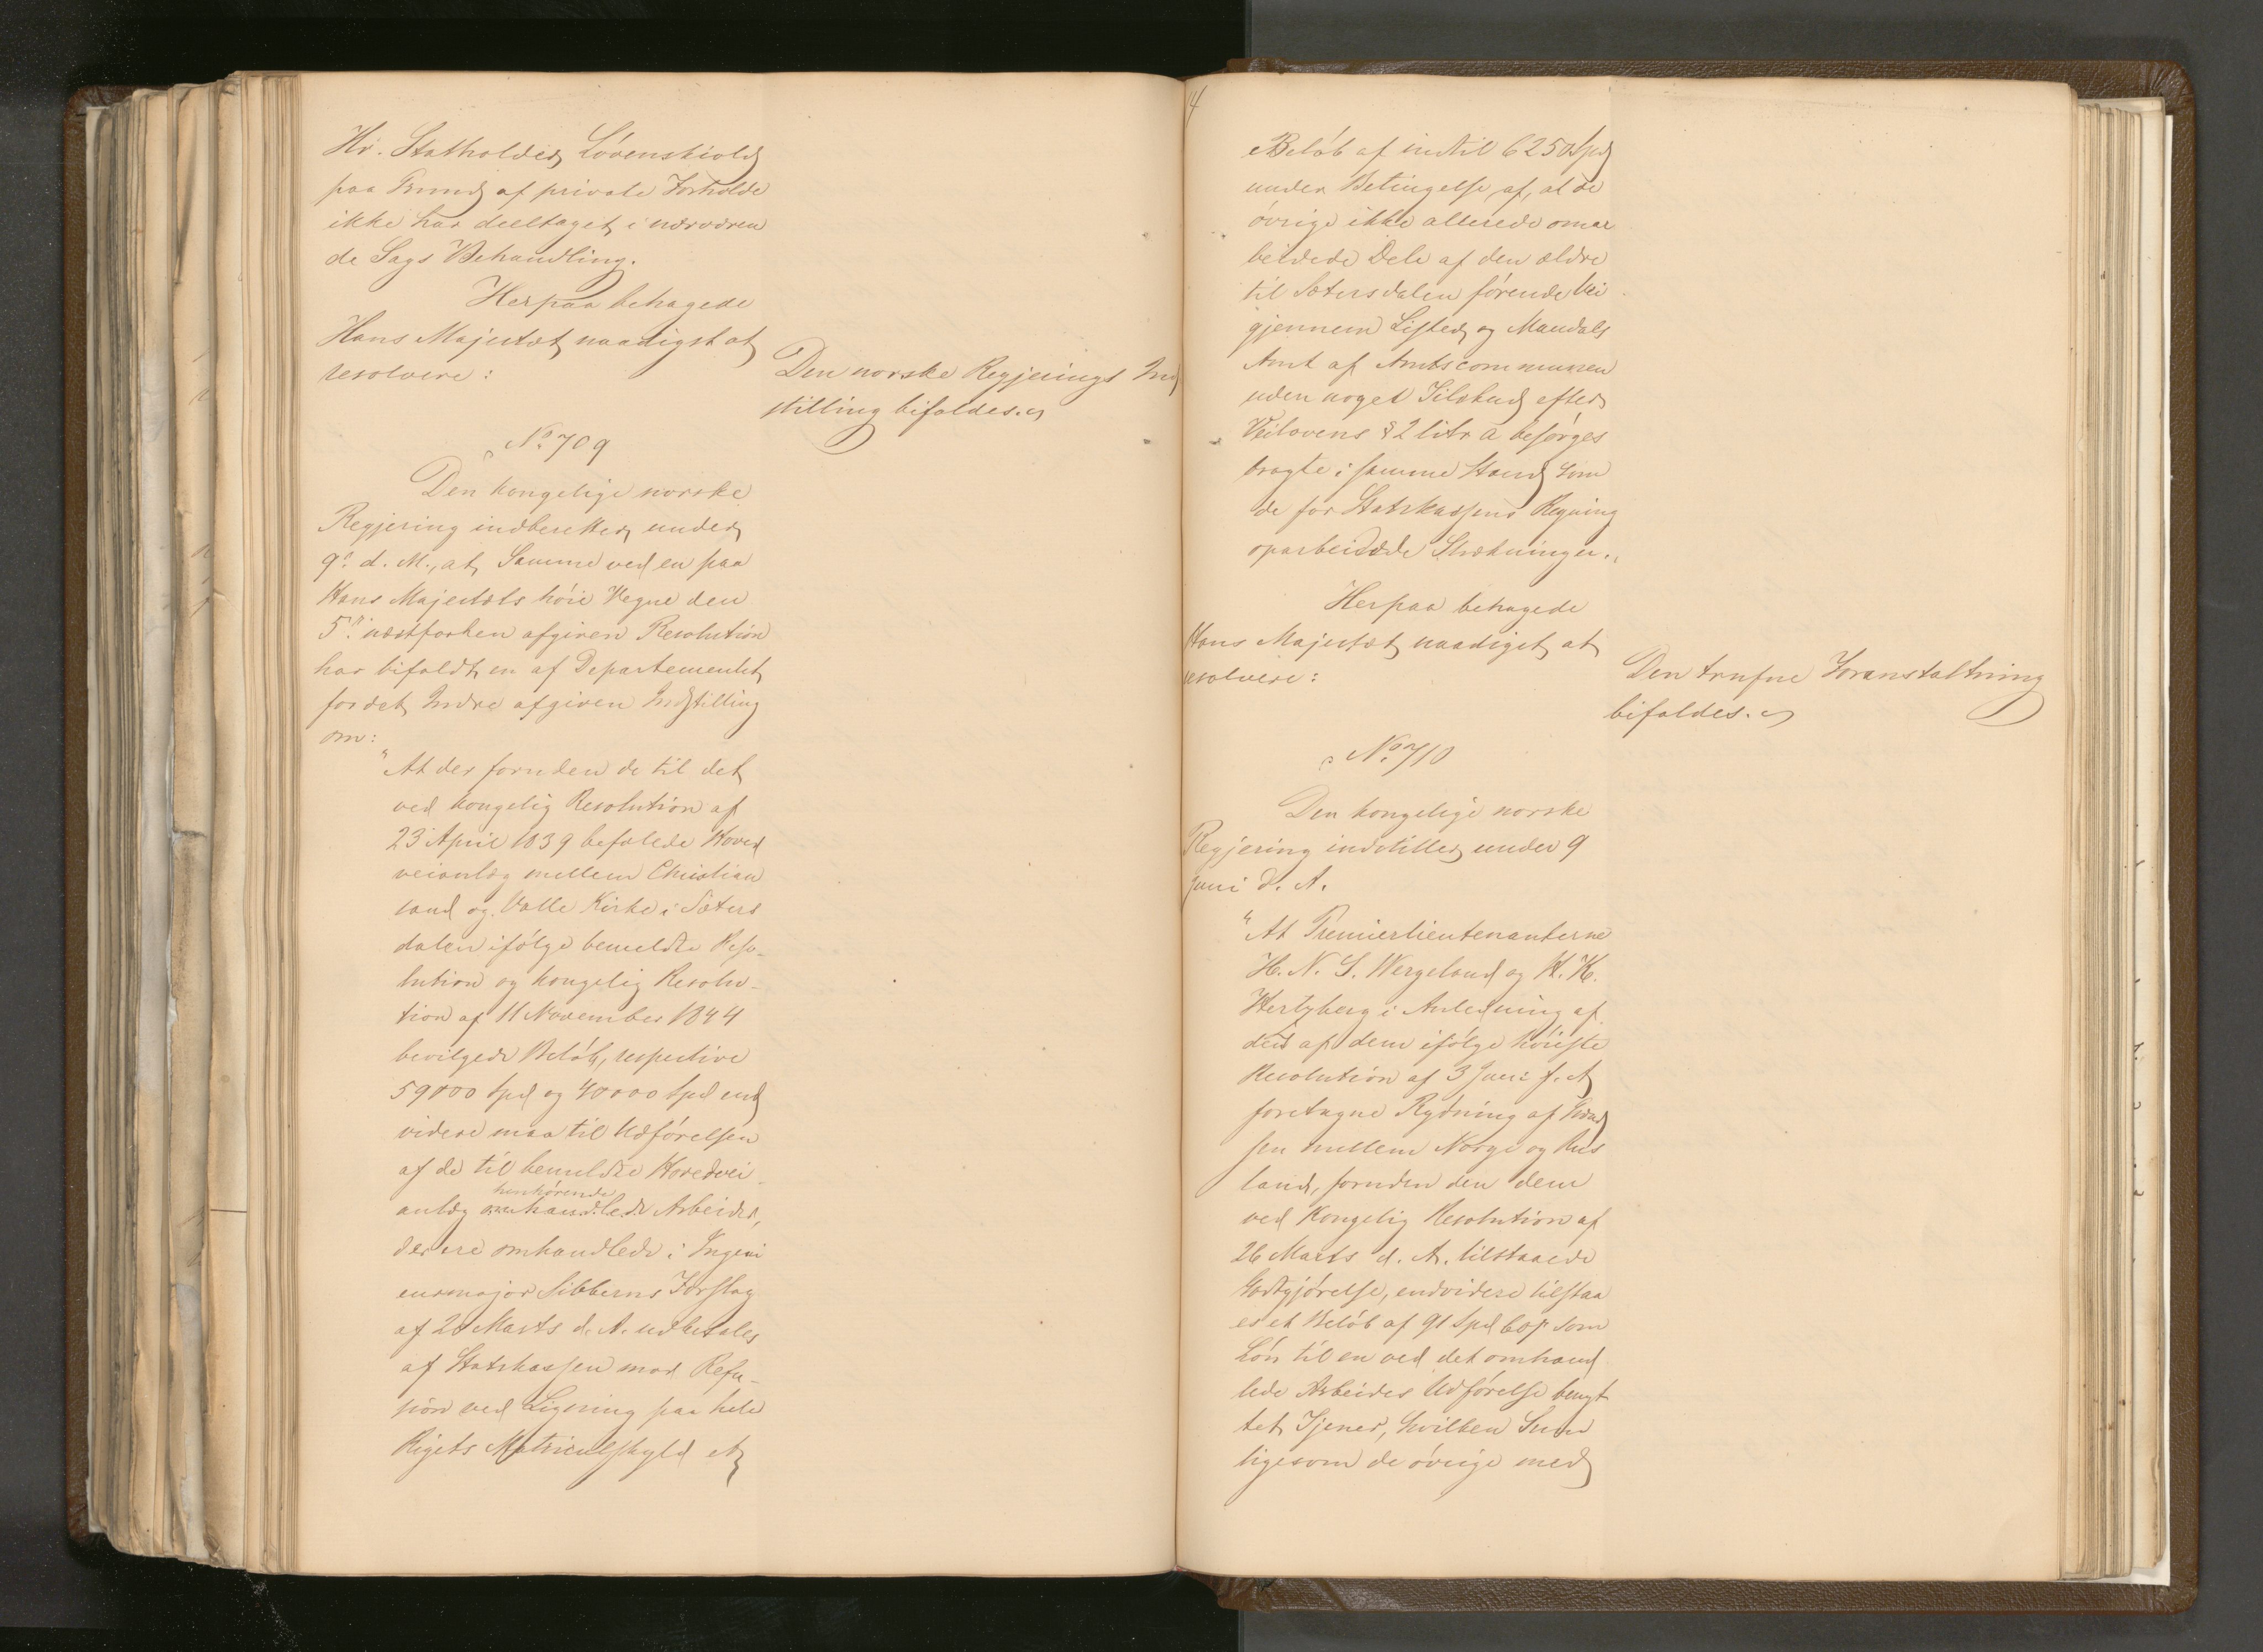 Hr. Statholder Løvenskiold
paa Grund af private Forholde
ikke har deeltaget i nærværen
de Sags Behandling.
Herpaa behagede
Hans Majestæt naadigst at
resolvere:
Den norske Regjerings Ind
stilling bifaldes.
No. 709
Den kongelige norske
Regjering indberetter under
9de d. M., at Samme ved en paa
Hans Majestæts høie Vegne den
5te næstforhen afgiven Resolution
har bifaldt en af Departementet
for det Indre afgiven Indstilling
om:
"At der foruden de til det
ved kongelig Resolution af
23 April 1839 befalede Hoved
veianlæg mellem Christian
sand og Valle Kirke i Sæters
dalen ifølge bemeldte Reso-
lution og kongelig Resolu-
tion af 11 November 1844
bevilgede Beløb, respective
59000 Spd og 40000 Spd end
videre maa til Udførelsen
af de til bemeldte Hovedvei
anlæg henhørende Arbeider,
der ere omhandlede i Ingeni
eurmajor Sibberns Forslag
af 20 Marts d. A. udbetales
af Statskassen mod Refu-
sion ved Ligning paa hele
Rigets Matriculskyld et
14
Beløb af indtil 6250 Spd
under Betingelse af, at de
øvrige ikke allerede omar
beidede Dele af den ældre
til Sætersdalen førende Vei
gjennem Lister og Mandals
Amt af Amtscommunen
uden noget Tilskud efter
Veilovens § 2 litr a besørges
bragte i samme Stand som
de for Statskassens Regning
oparbeidede Strækninger.
Herpaa behagede
Hans Majestæt naadigst at
resolvere:
Den trufne Foranstaltning
bifaldes.
No. 710
Den kongelige norske
Regjering indstiller under 9
Juni d. A.
"At Premierlieutenanterne
H. N. S. Wergeland og H. H.
Hertzberg i Anledning af
den af dem ifølge høieste
Resolution af 3 Juni f. A
foretagne Rydning af Grænd
sen mellem Norge og Rus
land, foruden den dem
ved Kongelig Resolution af
26 Marts d. A. tilstaaede
Godtgjørelse, endvidere tilstaa
es et Beløb af 91 Spd 60 s som
Løn til en ved det omhand
lede Arbeides Udførelse benyt
tet Tjener, hvilken Sum
ligesom de øvrige med